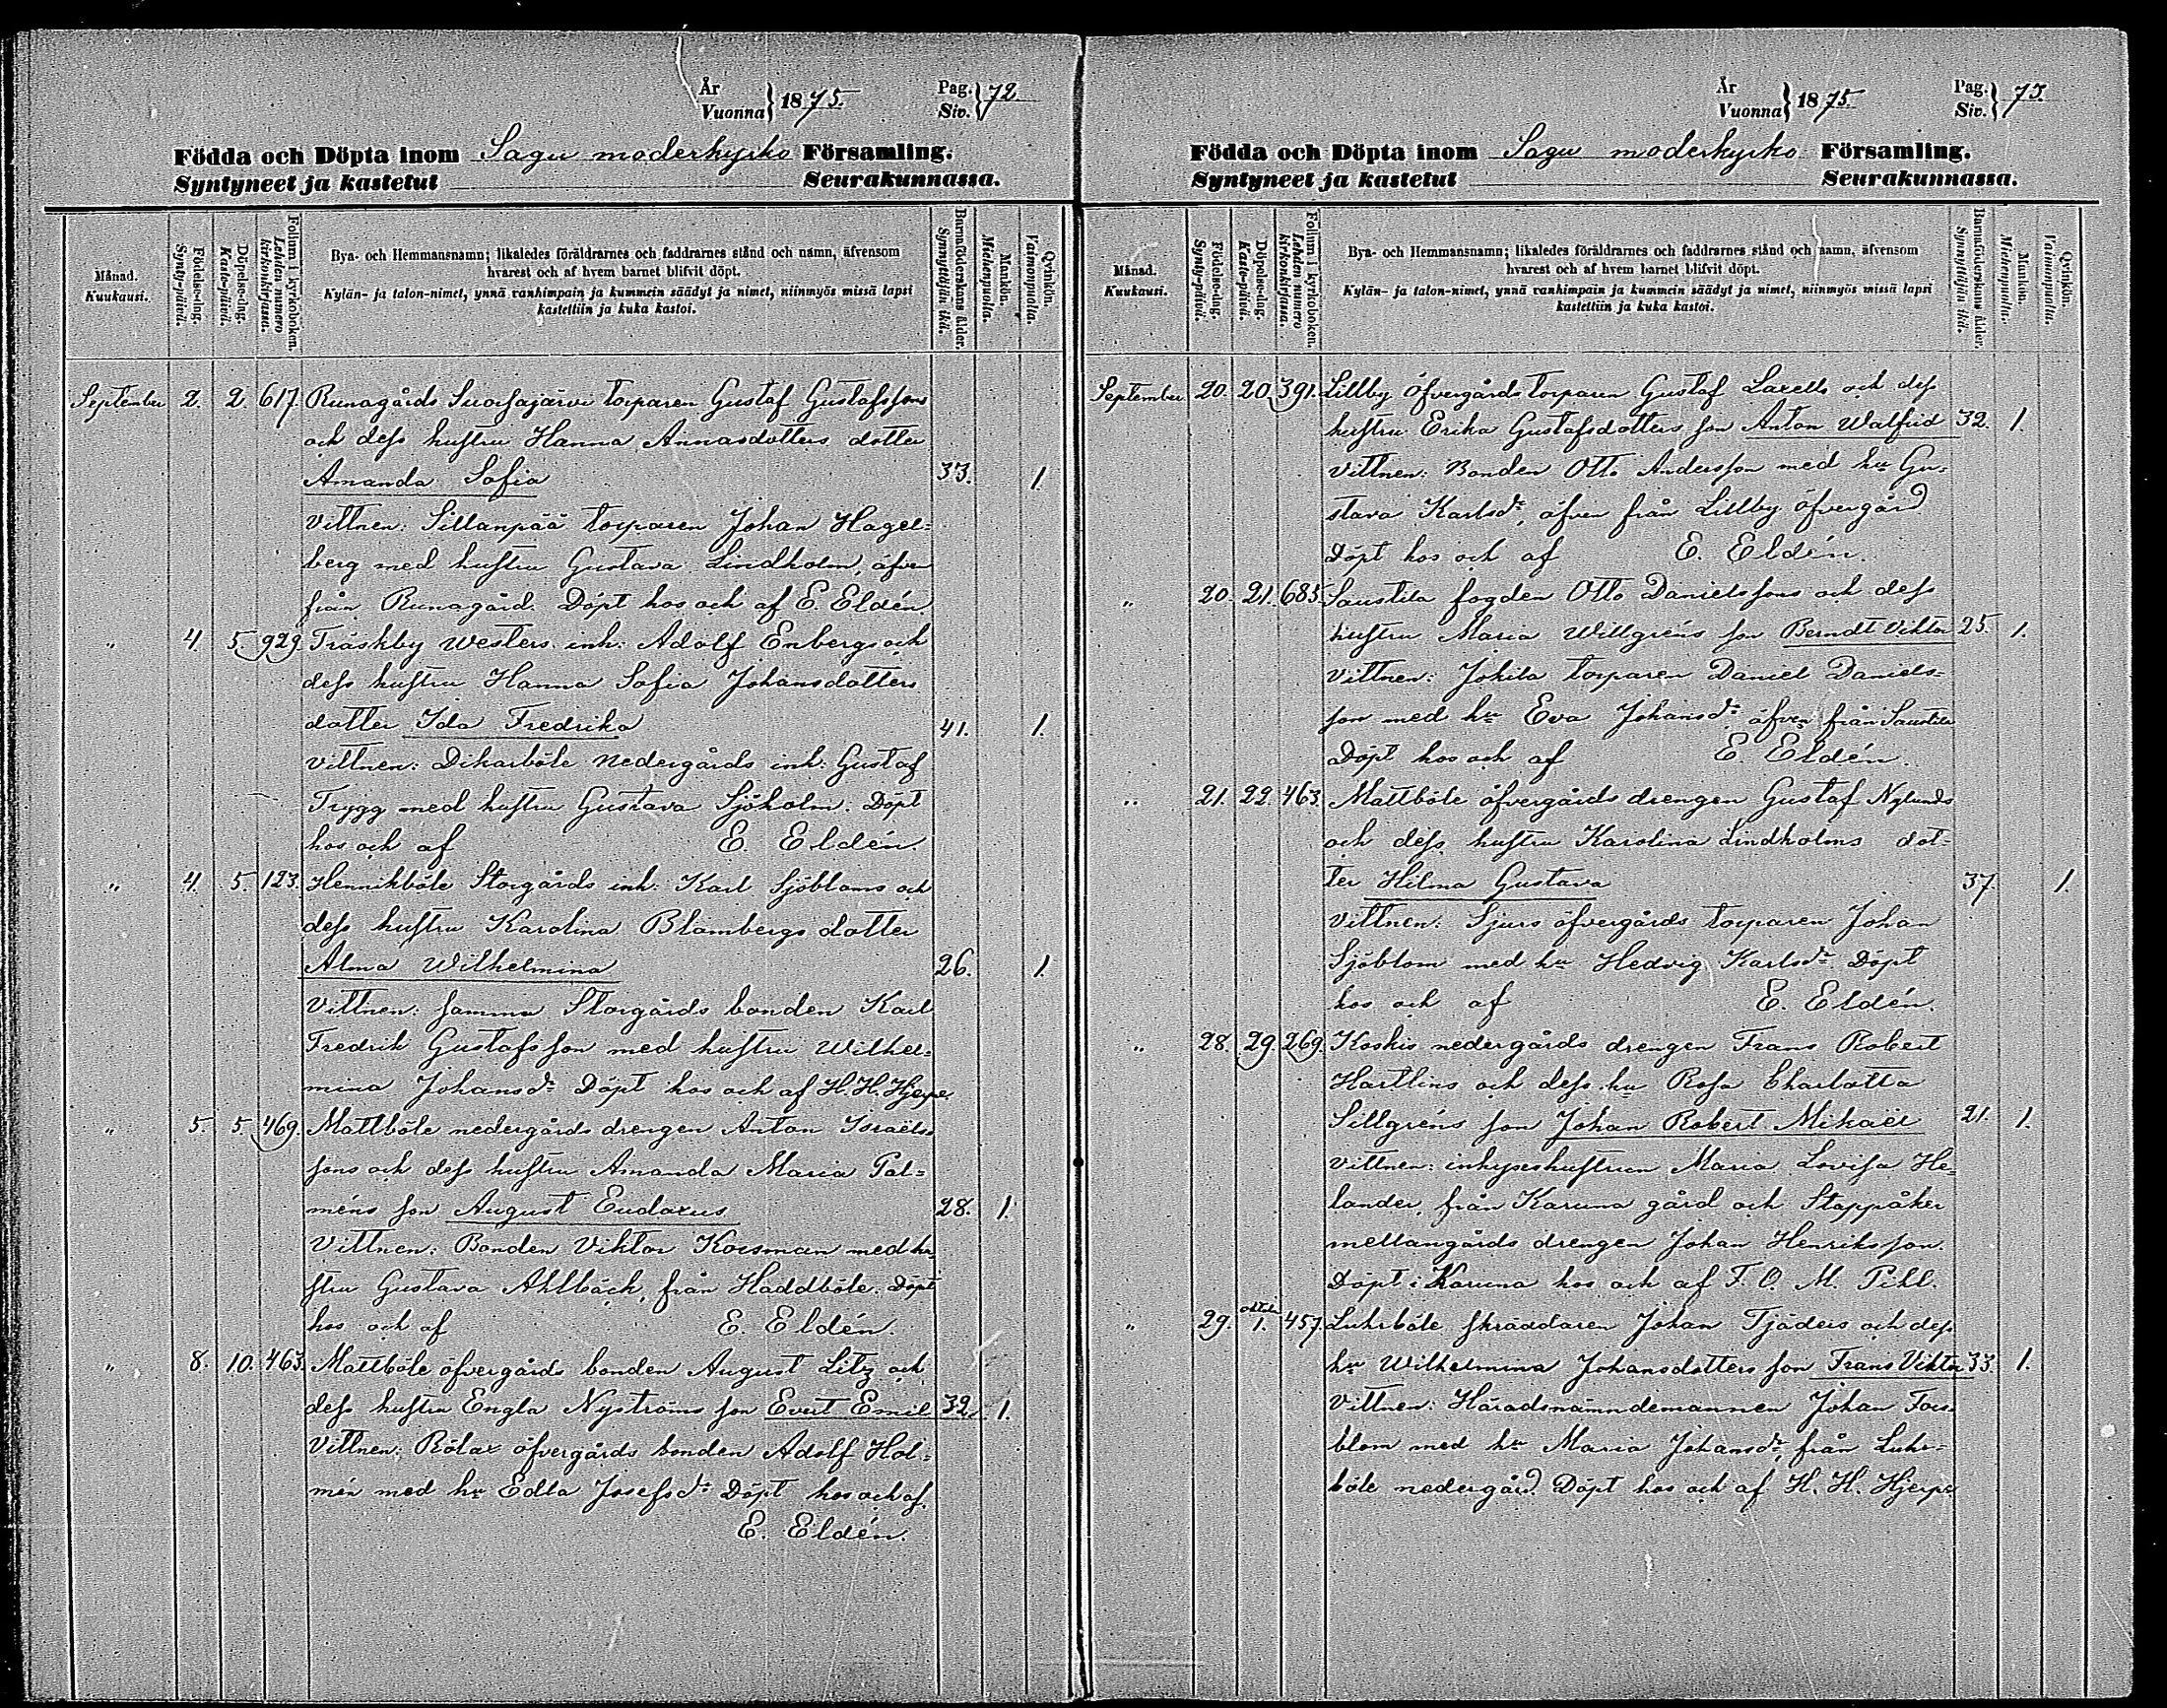 År
Vuonna } 1875.
Pag.
Siv. } 72.
Födda och Döpta inom Sagu moderkyrko Församling.
Syntyneet ja kastetut Seurakunnassa.
Månad.
Kuukausi.
Födelse-dag.
Synty-päivä.
Döpelse-dag.
Kaste-päivä.
Folium i kyrkoboken.
Lehden numero kirkonkirjassa.
Bya- och Hemmansnamn; likaledes föräldrarnes och faddrarnes stånd och namn, äfvensom
hvarest och af hvem barnet blifvit döpt.
Kylän- ja talon-nimet, ynnä vanhimpain ja kummein säädyt ja nimet, niinmyös missä lapsi
kastettiin ja kuka kastoi.
Barnaföderskans ålder.
Synnyttäjän ikä.
Mankön.
Miehenpuolia.
Qvinkön.
Vaimonpuolia.
September 2. 2. 617. Runagårds Suosajärvi torparen Gustaf Gustafssons
och dess hustru Hanna Annasdotters dotter
Amanda Sofia 33. 1.
Vittnen: Sillanpää torparen Johan Hagel=
berg med hustru Gustava Lindholm, äfven
från Runagård. Döpt hos och af E. Eldén
" 4. 5. 929. Träskby Westers inh: Adolf Enbergs och
dess hustru Hanna Sofia Johansdotters
dotter Ida Fredrika 41. 1.
Vittnen: Dikarböle nedergårds inh: Gustaf
Trygg med hustru Gustava Sjöholm. Döpt
hos och af E. Eldén.
" 4. 5. 123. Hennikböle Storgårds inh: Karl Sjöbloms och
dess hustru Karolina Blombergs dotter
Alma Wilhelmina 26. 1.
Vittnen: samma Storgårds bonden Karl
Fredrik Gustafsson med hustru Wilhel=
mina Johansdr Döpt hos och af H. H. Hjerpe.
" 5. 5. 469. Mattböle nedergårds drengen Anton Israels=
sons och dess hustru Amanda Maria Pal=
méns son August Eudoxus 28. 1.
Vittnen: Bonden Viktor Korsman med hu
stru Gustava Ahlbäck, från Haddböle. Döpt
hos och af E. Eldén.
" 8. 10. 463. Mattböle öfvergårds bonden August Litz och
dess hustru Engla Nyströms son Evert Emil 32. 1.
Vittnen: Rölax öfvergårds bonden Adolf Hol=
mén med hu Edla Josefsdr Döpt hos och af
E. Eldén.
År
Vuonna } 1875.
Pag.
Siv. } 73.
Födda och Döpta inom Sagu moderkyrko Församling.
Syntyneet ja kastetut Seurakunnassa.
Månad.
Kuukausi.
Födelse-dag.
Synty-päivä.
Döpelse-dag.
Kaste-päivä.
Folium i kyrkoboken.
Lehden numero kirkonkirjassa.
Bya- och Hemmansnamn; likaledes föräldrarnes och faddrarnes stånd och namn, äfvensom
hvarest och af hvem barnet blifvit döpt.
Kylän- ja talon-nimet, ynnä vanhimpain ja kummein säädyt ja nimet, niinmyös missä lapsi
kastettiin ja kuka kastoi.
Barnaföderskans ålder.
Synnyttäjän ikä.
Mankön.
Miehenpuolia.
Qvinkön.
Vaimonpuolia.
September 20. 20. 391. Lillby Öfvergårds torparen Gustaf Laxells och dess
hustru Erika Gustafsdotters son Anton Walfrid 32. 1.
Vittnen: Bonden Otto Andersson med hu Gu=
stava Karlsdr, äfven från Lillby öfvergård
Döpt hos och af E. Eldén.
" 20. 21. 685. Saustila fogden Otto Danielssons och dess
hustru Maria Willgréns son Berndt Viktor 25. 1.
Vittnen: Jokila torparen Daniel Daniels=
son med hu Eva Johansdr äfven från Saustila
Döpt hos och af E. Eldén.
" 21. 22. 463. Mattböle öfvergårds drengen Gustaf Nylunds
och dess hustru Karolina Lindholms dot=
ter Hilma Gustava 37. 1.
Vittnen: Sjurs öfvergårds torparen Johan
Sjöblom med hu Hedvig Karlsdr Döpt
hos och af E. Eldén.
" 28. 29. 269. Koskis nedergårds drengen Frans Robert
Hartlins och dess hu Rosa Charlotta
Sillgréns son Johan Robert Mikael 21. 1.
Vittnen: inhyseshustrun Maria Lovisa He=
lander, från Karuna gård och Stappåker
mellangårds drengen Johan Henriksson.
Döpt i Karuna hos och af F. O. M. Pihl.
" 29. oktober 1. 457. Luhrböle skräddaren Johan Tjäders och dess
hu Wilhelmina Johansdotters son Frans Viktor 33. 1.
Vittnen: Häradsnämndemannen Johan Fors=
blom med hu Maria Johansdr, från Luhr=
böle nedergård. Döpt hos och af H. H. Hjerpe